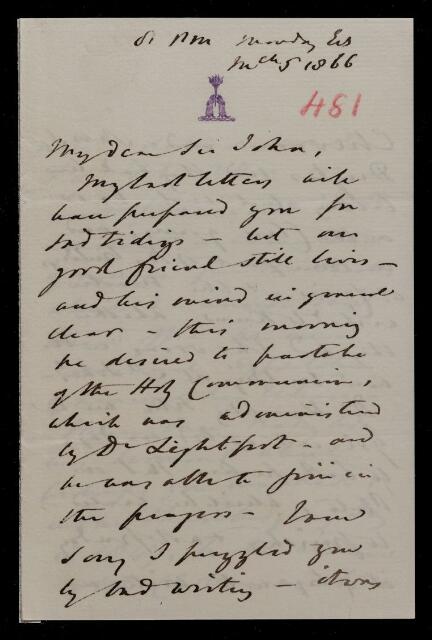 8. PM Monday Eg
Mch 5 1866
481
My dear Sir John,
My last letters will
have prepared you for
sad tidings – but our
good friend still lives –
and his mind in general
clear – This morning
he desired to partake
of the Holy Communion,
which was administered
by Dr Lightfoot – and
he was able to join in
the prayers – I am
sorry I puzzled you
by bad writing – it was